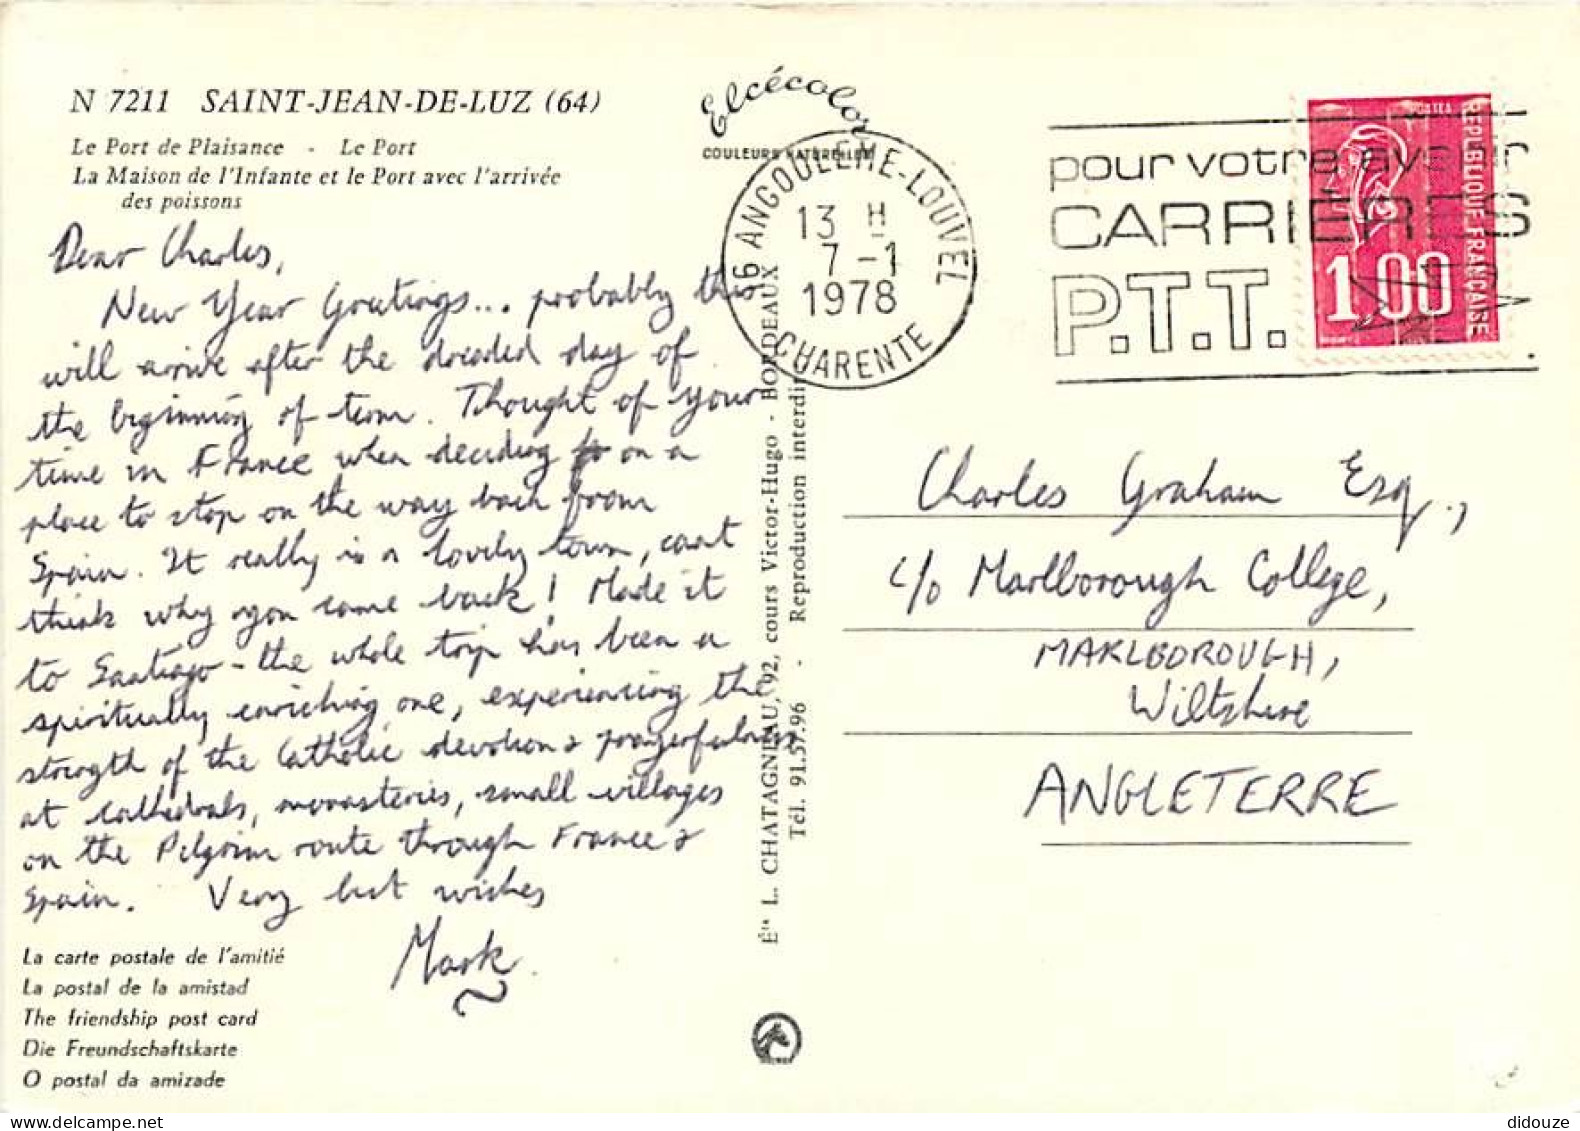 N 7211 SAINT-JEAN-DE-LUZ (64)
Le Port de Plaisance - Le Port
La Maison de l'Infante et le Port avec l'arrivée
des poissons
Dear Charles,
New Year Greetings... probably this
will arrive after the dreaded day of
the beginning of term. Thought of your
time in France when deciding on a
place to stop on the way back from
Spain. It really is a lovely town, can't
think why you came back! Made it
to Santiago - the whole trip has been a
spiritually enriching one, experiencing the
strength of the Catholic devotion & prayerfulness
at cathedrals, monasteries, small villages
on the Pilgrim route through France &
Spain. Very best wishes
Mark
La carte postale de l'amitié
La postal de la amistad
The friendship post card
Die Freundschaftskarte
O postal da amizade
Elcécolor
COULEURS NATURELLES
16 ANGOULEME-LOUVEL
13 H
7-1
1978
CHARENTE
Éts L. CHATAGNEAU, 92, cours Victor-Hugo - BORDEAUX
Tél. 91.57.96 - Reproduction interdite
pour votre avenir
CARRIERES
P.T.T.
POSTES
REPUBLIQUE FRANÇAISE
1,00
Charles Graham Esq.,
c/o Marlborough College,
MARLBOROUGH,
Wiltshire
ANGLETERRE
didouze